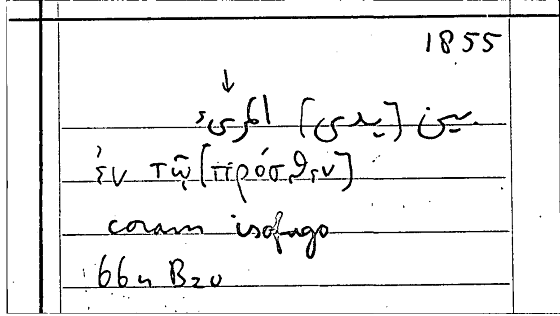 1855
↓
بين [يدى] المرىء
ἐν τῷ [πρόσθεν]
coram isofago
664 B20